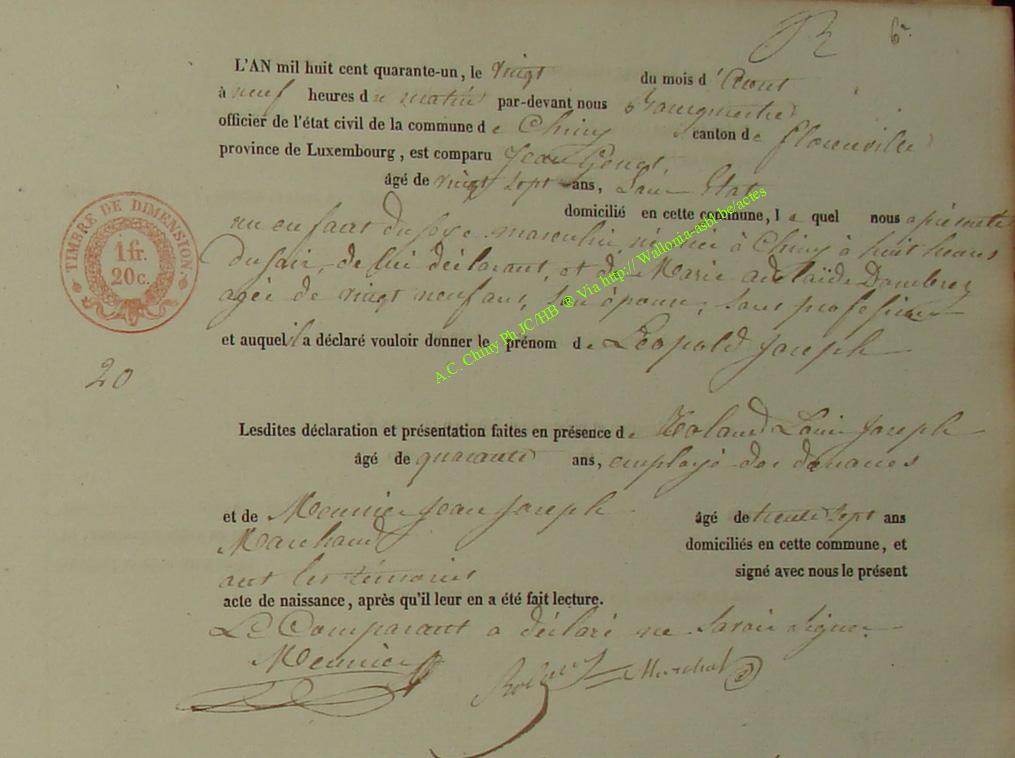 6e
L'AN mil huit cent quarante-un, le vingt du mois d'Aout
à neuf heures du matin par-devant nous Bourgmestre
officier de l'état civil de la commune de Chiny canton de florenville
province de Luxembourg, est comparu Jean
âgé de vingt sept ans, Sans Etat
domicilié en cette commune, le quel nous a présenté
un enfant du sexe masculin né hier à Chiny à huit heures
du soir, de lui déclarant, et de Marie adelaïde Dombrez
agée de vingt neuf ans, son épouse, sans profession
et auquel il a déclaré vouloir donner le prénom de Léopold Joseph
20
Lesdites déclaration et présentation faites en présence de Roland Louis Joseph
âgé de quarante ans, employé des douanes
et de Meunier Jean Joseph âgé de trente sept ans
Marchand domiciliés en cette commune, et
ont les témoins signé avec nous le présent
acte de naissance, après qu'il leur en a été fait lecture.
Le Comparant a déclaré ne savoir signer
Meunier Marchal
TIMBRE DE DIMENSION
1 fr.
20 c.
A.C. Chiny Ph JC/HB ® Via http:// Wallonia-asbl.be/actes